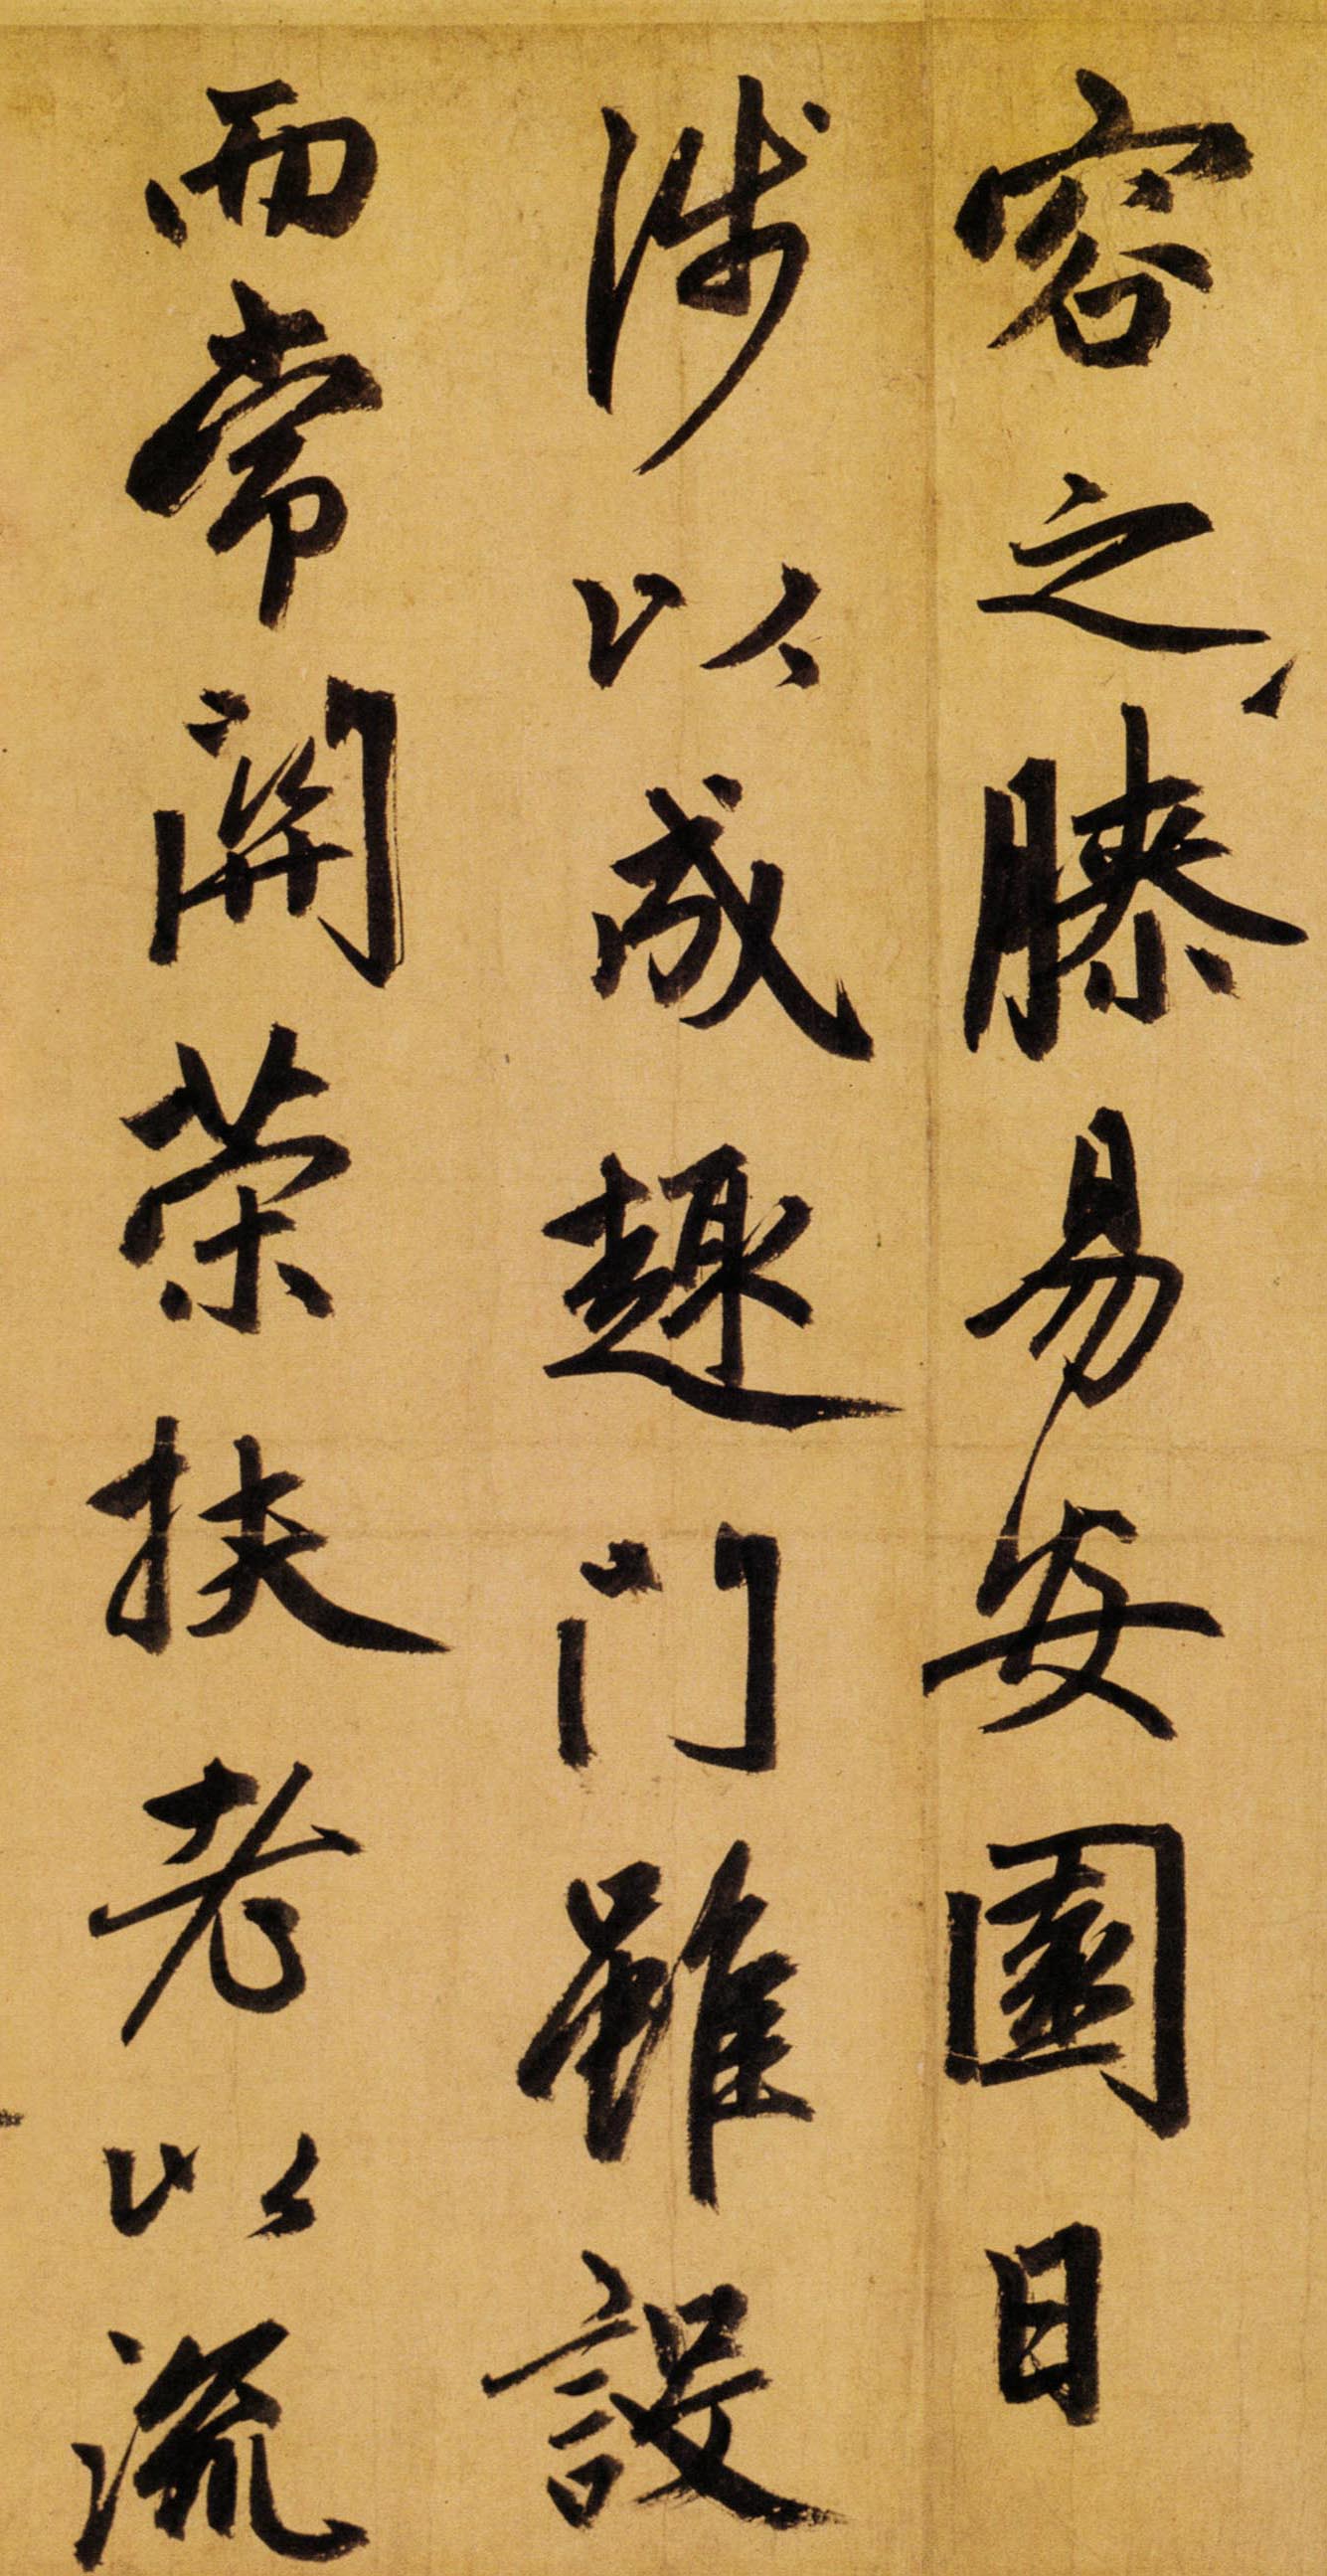 容之膝易安園日
涉以成趣門雖設
而常開荣扶老以流